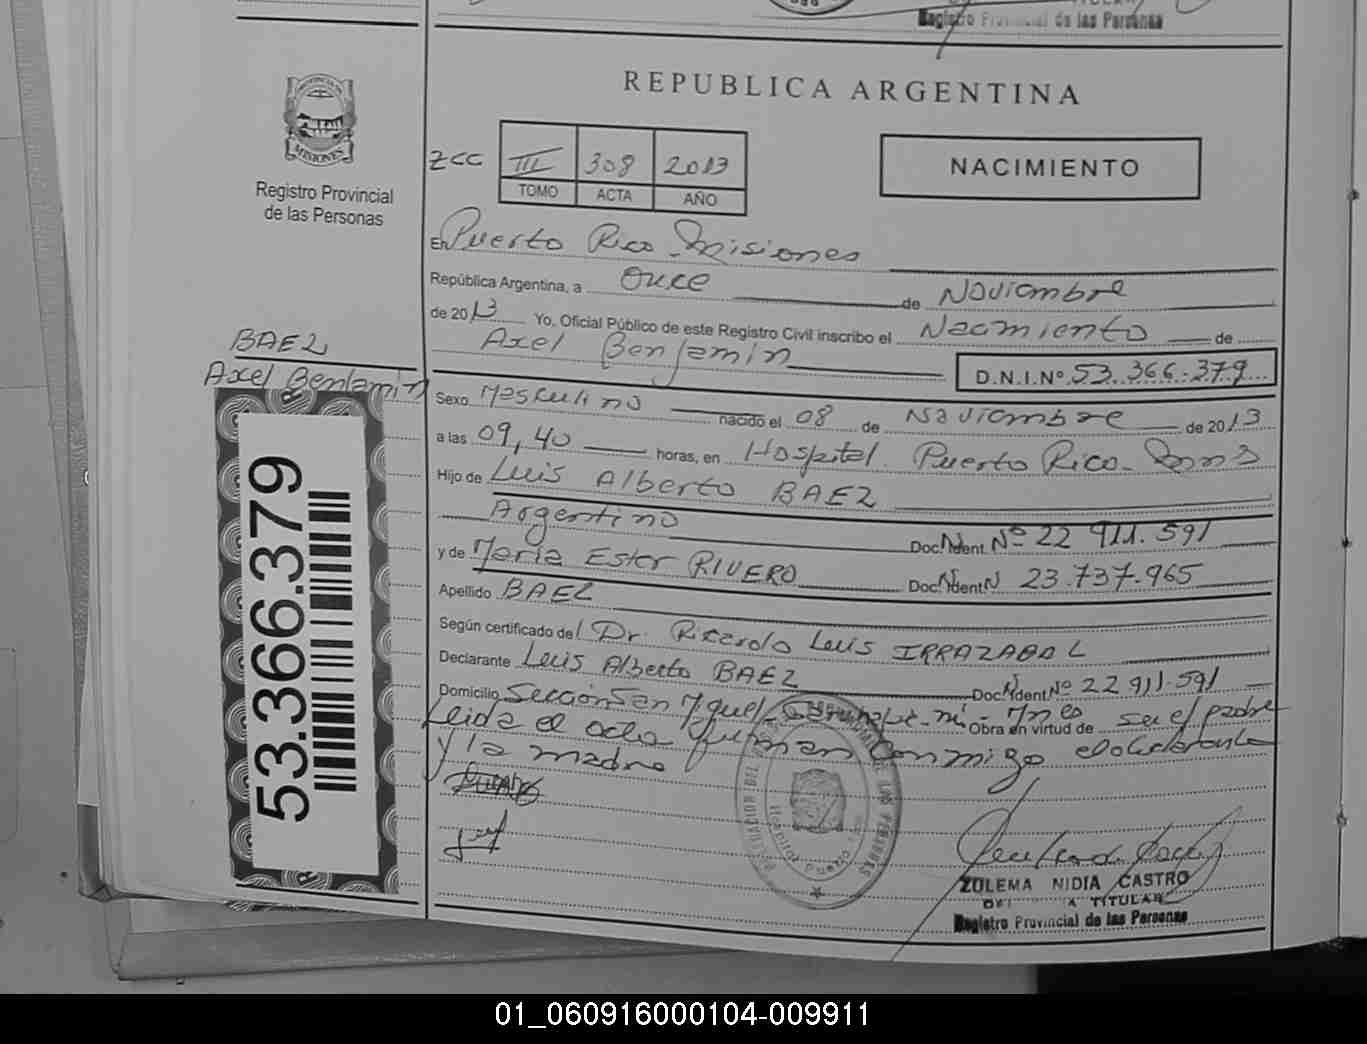 Registro Provincial de las Personas
PROVINCIA DE
MISIONES
Registro Provincial
de las Personas
REPUBLICA ARGENTINA
ZCC III 308 2013
TOMO ACTA AÑO
NACIMIENTO
En Puerto Rico Misiones
República Argentina, a Once de Noviembre
de 2013 Yo, Oficial Público de este Registro Civil inscribo el Nacimiento de
Axel Benjamin D.N.I.Nº 53.366.379
BAEZ
Axel Benjamin
53.366.379
Sexo Masculino nacido el 08 de Noviembre de 2013
a las 09,40 horas, en Hospital Puerto Rico
Hijo de Luis Alberto BAEZ
Argentino Doc. Ident. Nº 22 911.591
y de Maria Ester RIVERO Doc. Ident. N 23.737.965
Apellido BAEZ
Según certificado del Dr. Ricardo Luis IRRAZABAL
Declarante Luis Alberto BAEZ Doc. Ident. Nº 22 911.591
Domicilio Sección San Miguel Obra en virtud de ser el padre
Leida el acta firman conmigo el declarante
y la madre
ZULEMA NIDIA CASTRO
TITULAR
Registro Provincial de las Personas
01_060916000104-009911